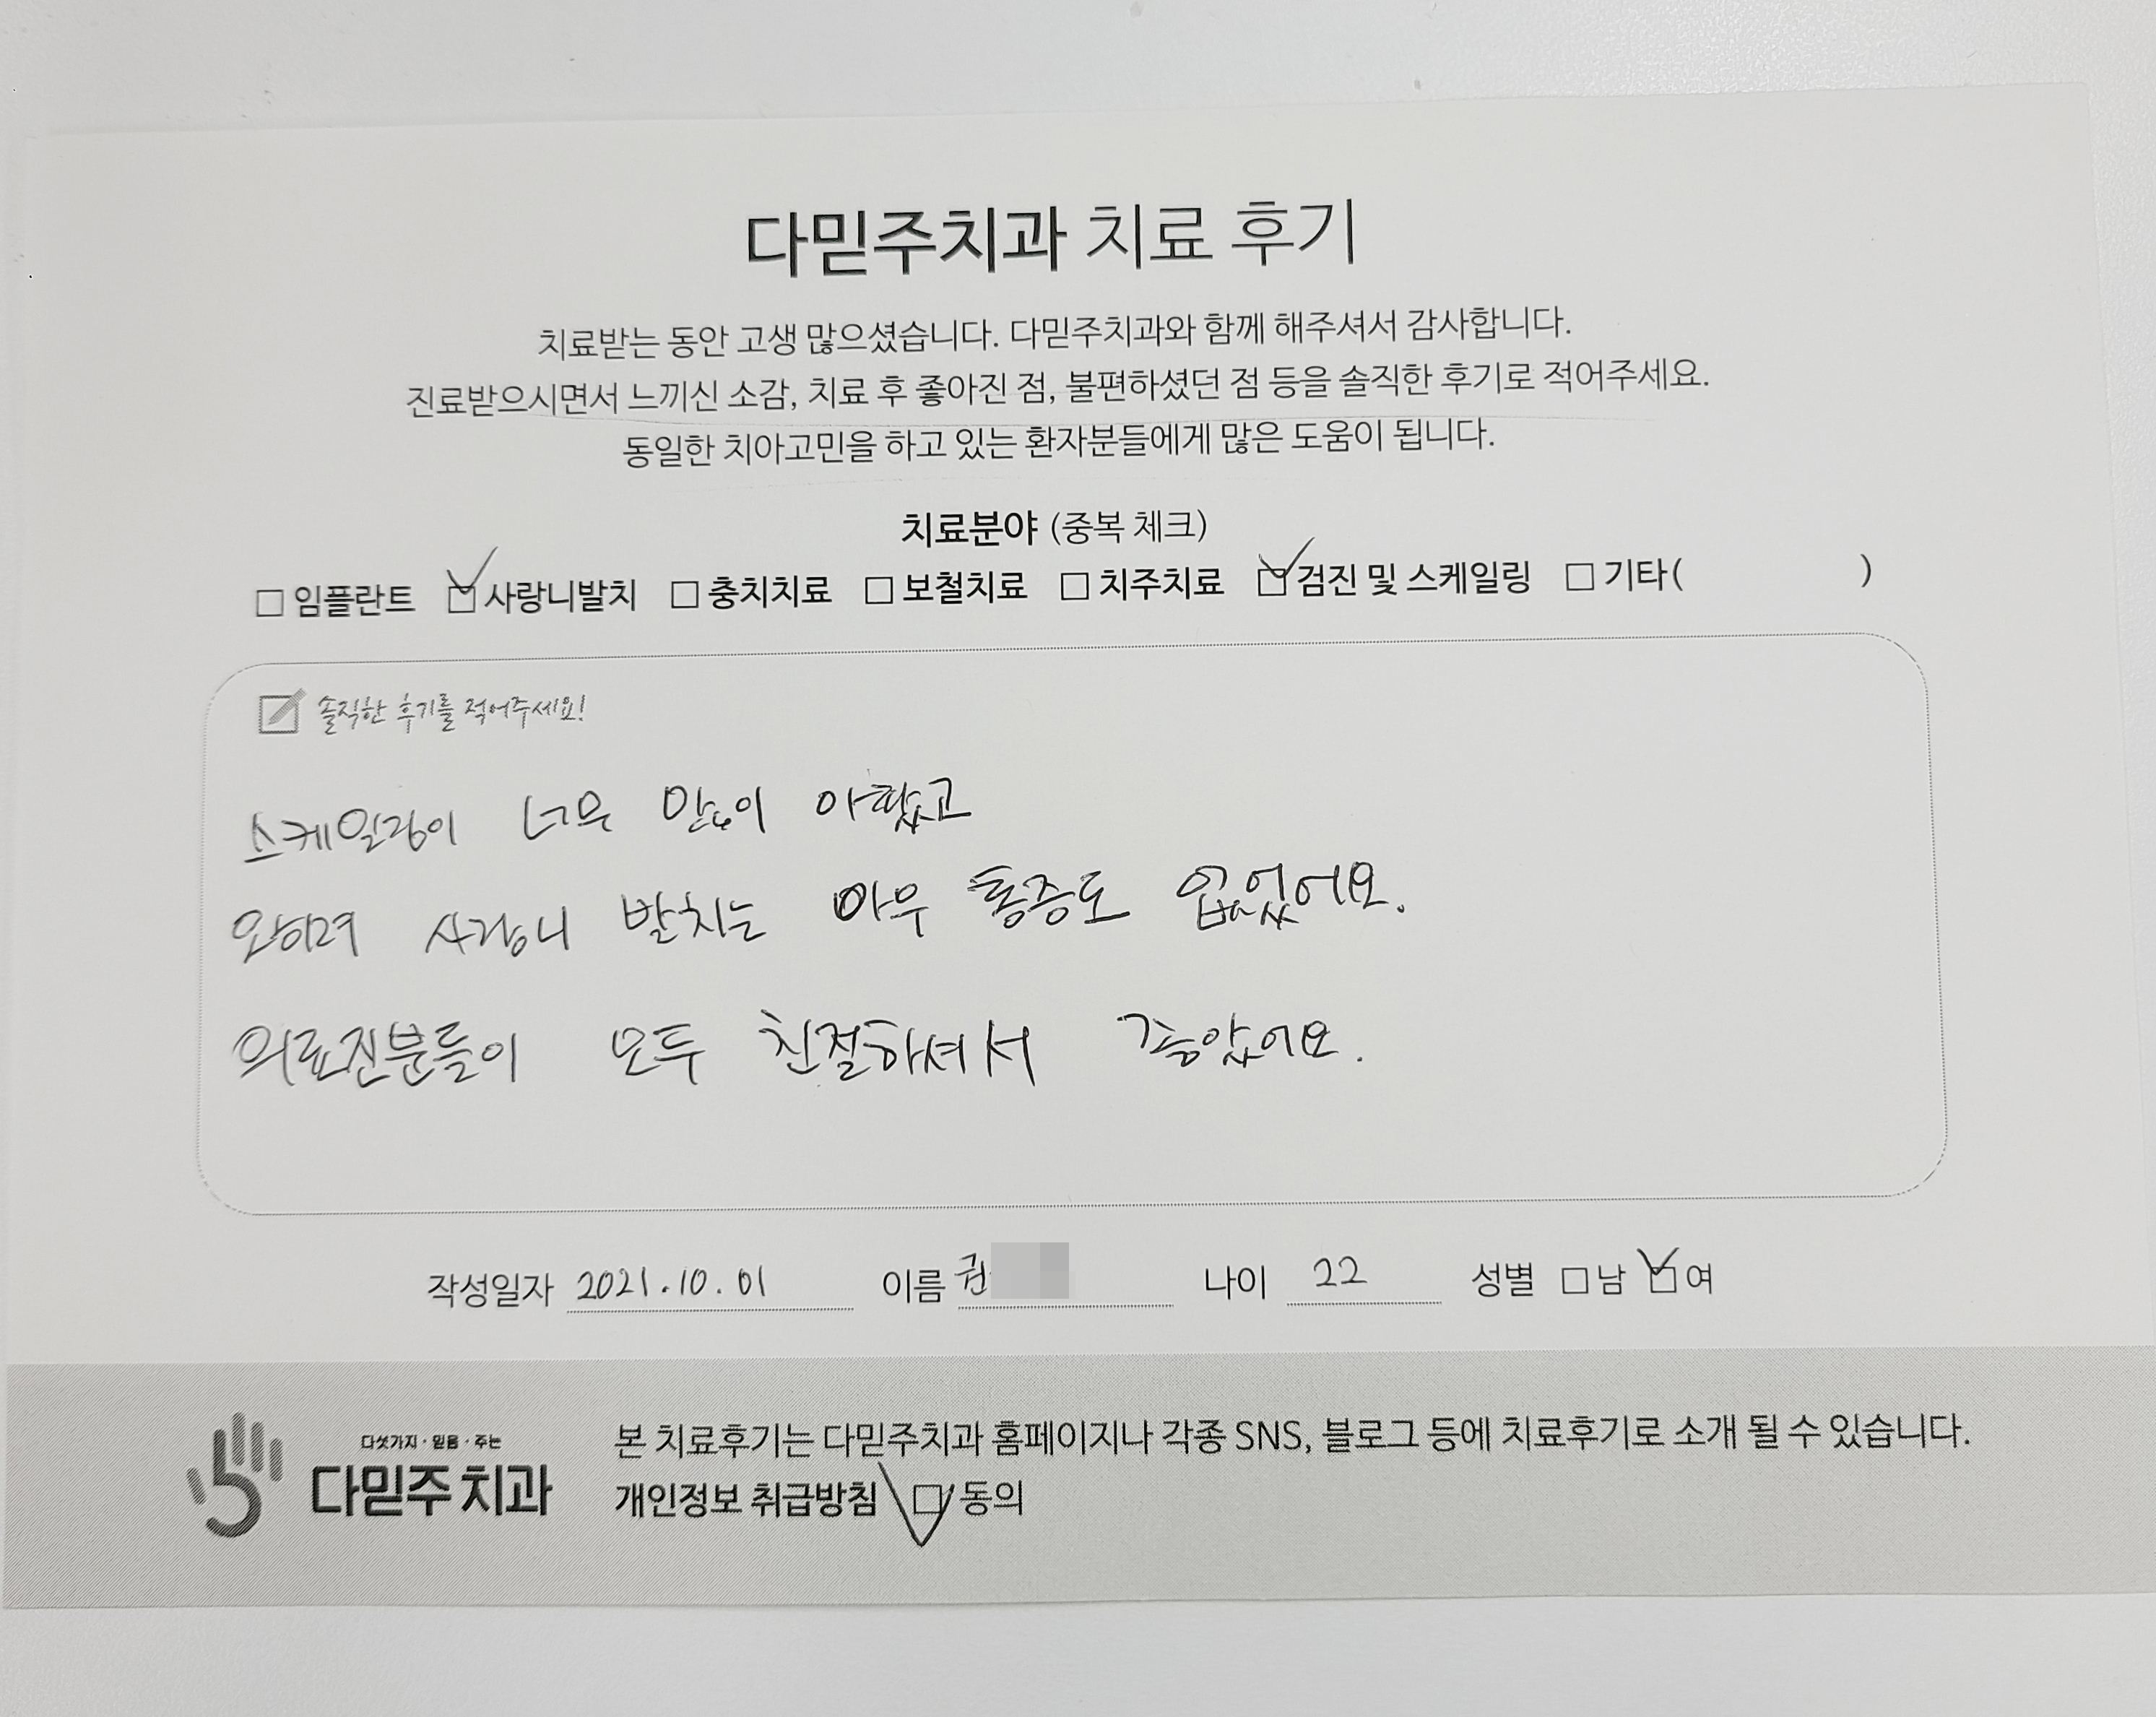 다믿주치과 치료 후기
치료받는 동안 고생 많으셨습니다. 다믿주치과와 함께 해주셔서 감사합니다.
진료받으시면서 느끼신 소감, 치료 후 좋아진 점, 불편하셨던 점 등을 솔직한 후기로 적어주세요.
동일한 치아고민을 하고 있는 환자분들에게 많은 도움이 됩니다.
치료분야 (중복 체크)
임플란트 사랑니발치 충치치료 보철치료 치주치료 검진 및 스케일링 기타( )
솔직한 후기를 적어주세요!
스케일링이 너무 많이 아팠고
오히려 사랑니 발치는 아무 통증도 없었어요.
의료진분들이 모두 친절하셔서 좋았어요.
작성일자 2021.10.01 이름 권 나이 22 성별 남 여
다섯가지·믿음·주는
다믿주치과
본 치료후기는 다믿주치과 홈페이지나 각종 SNS, 블로그 등에 치료후기로 소개 될 수 있습니다.
개인정보 취급방침 동의